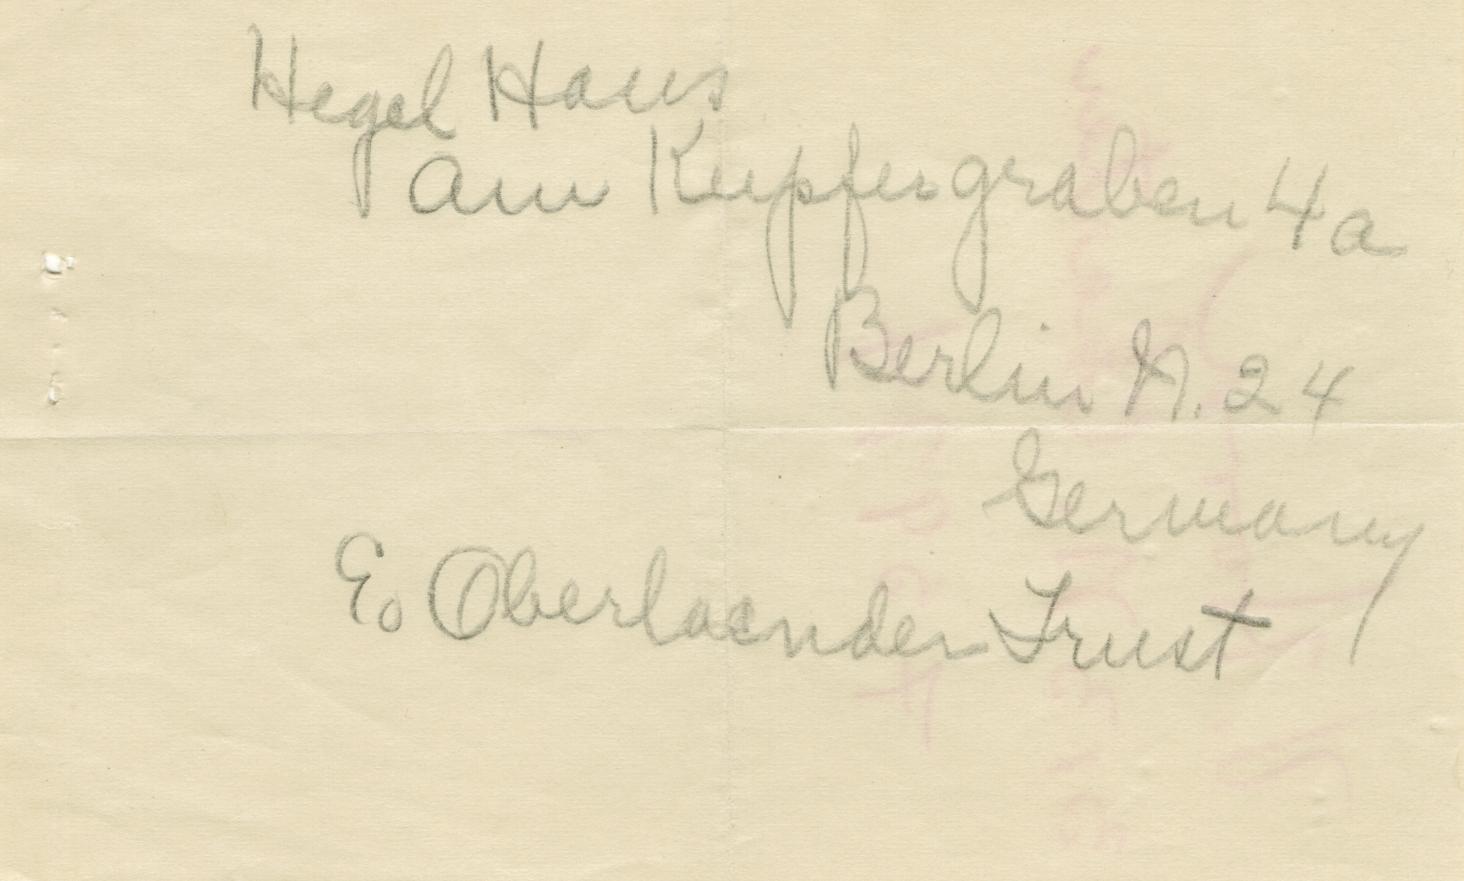 Hegel Haus
am Kupfergraben 4a
Berlin N. 24
Germany
℅ Oberlaender Trust